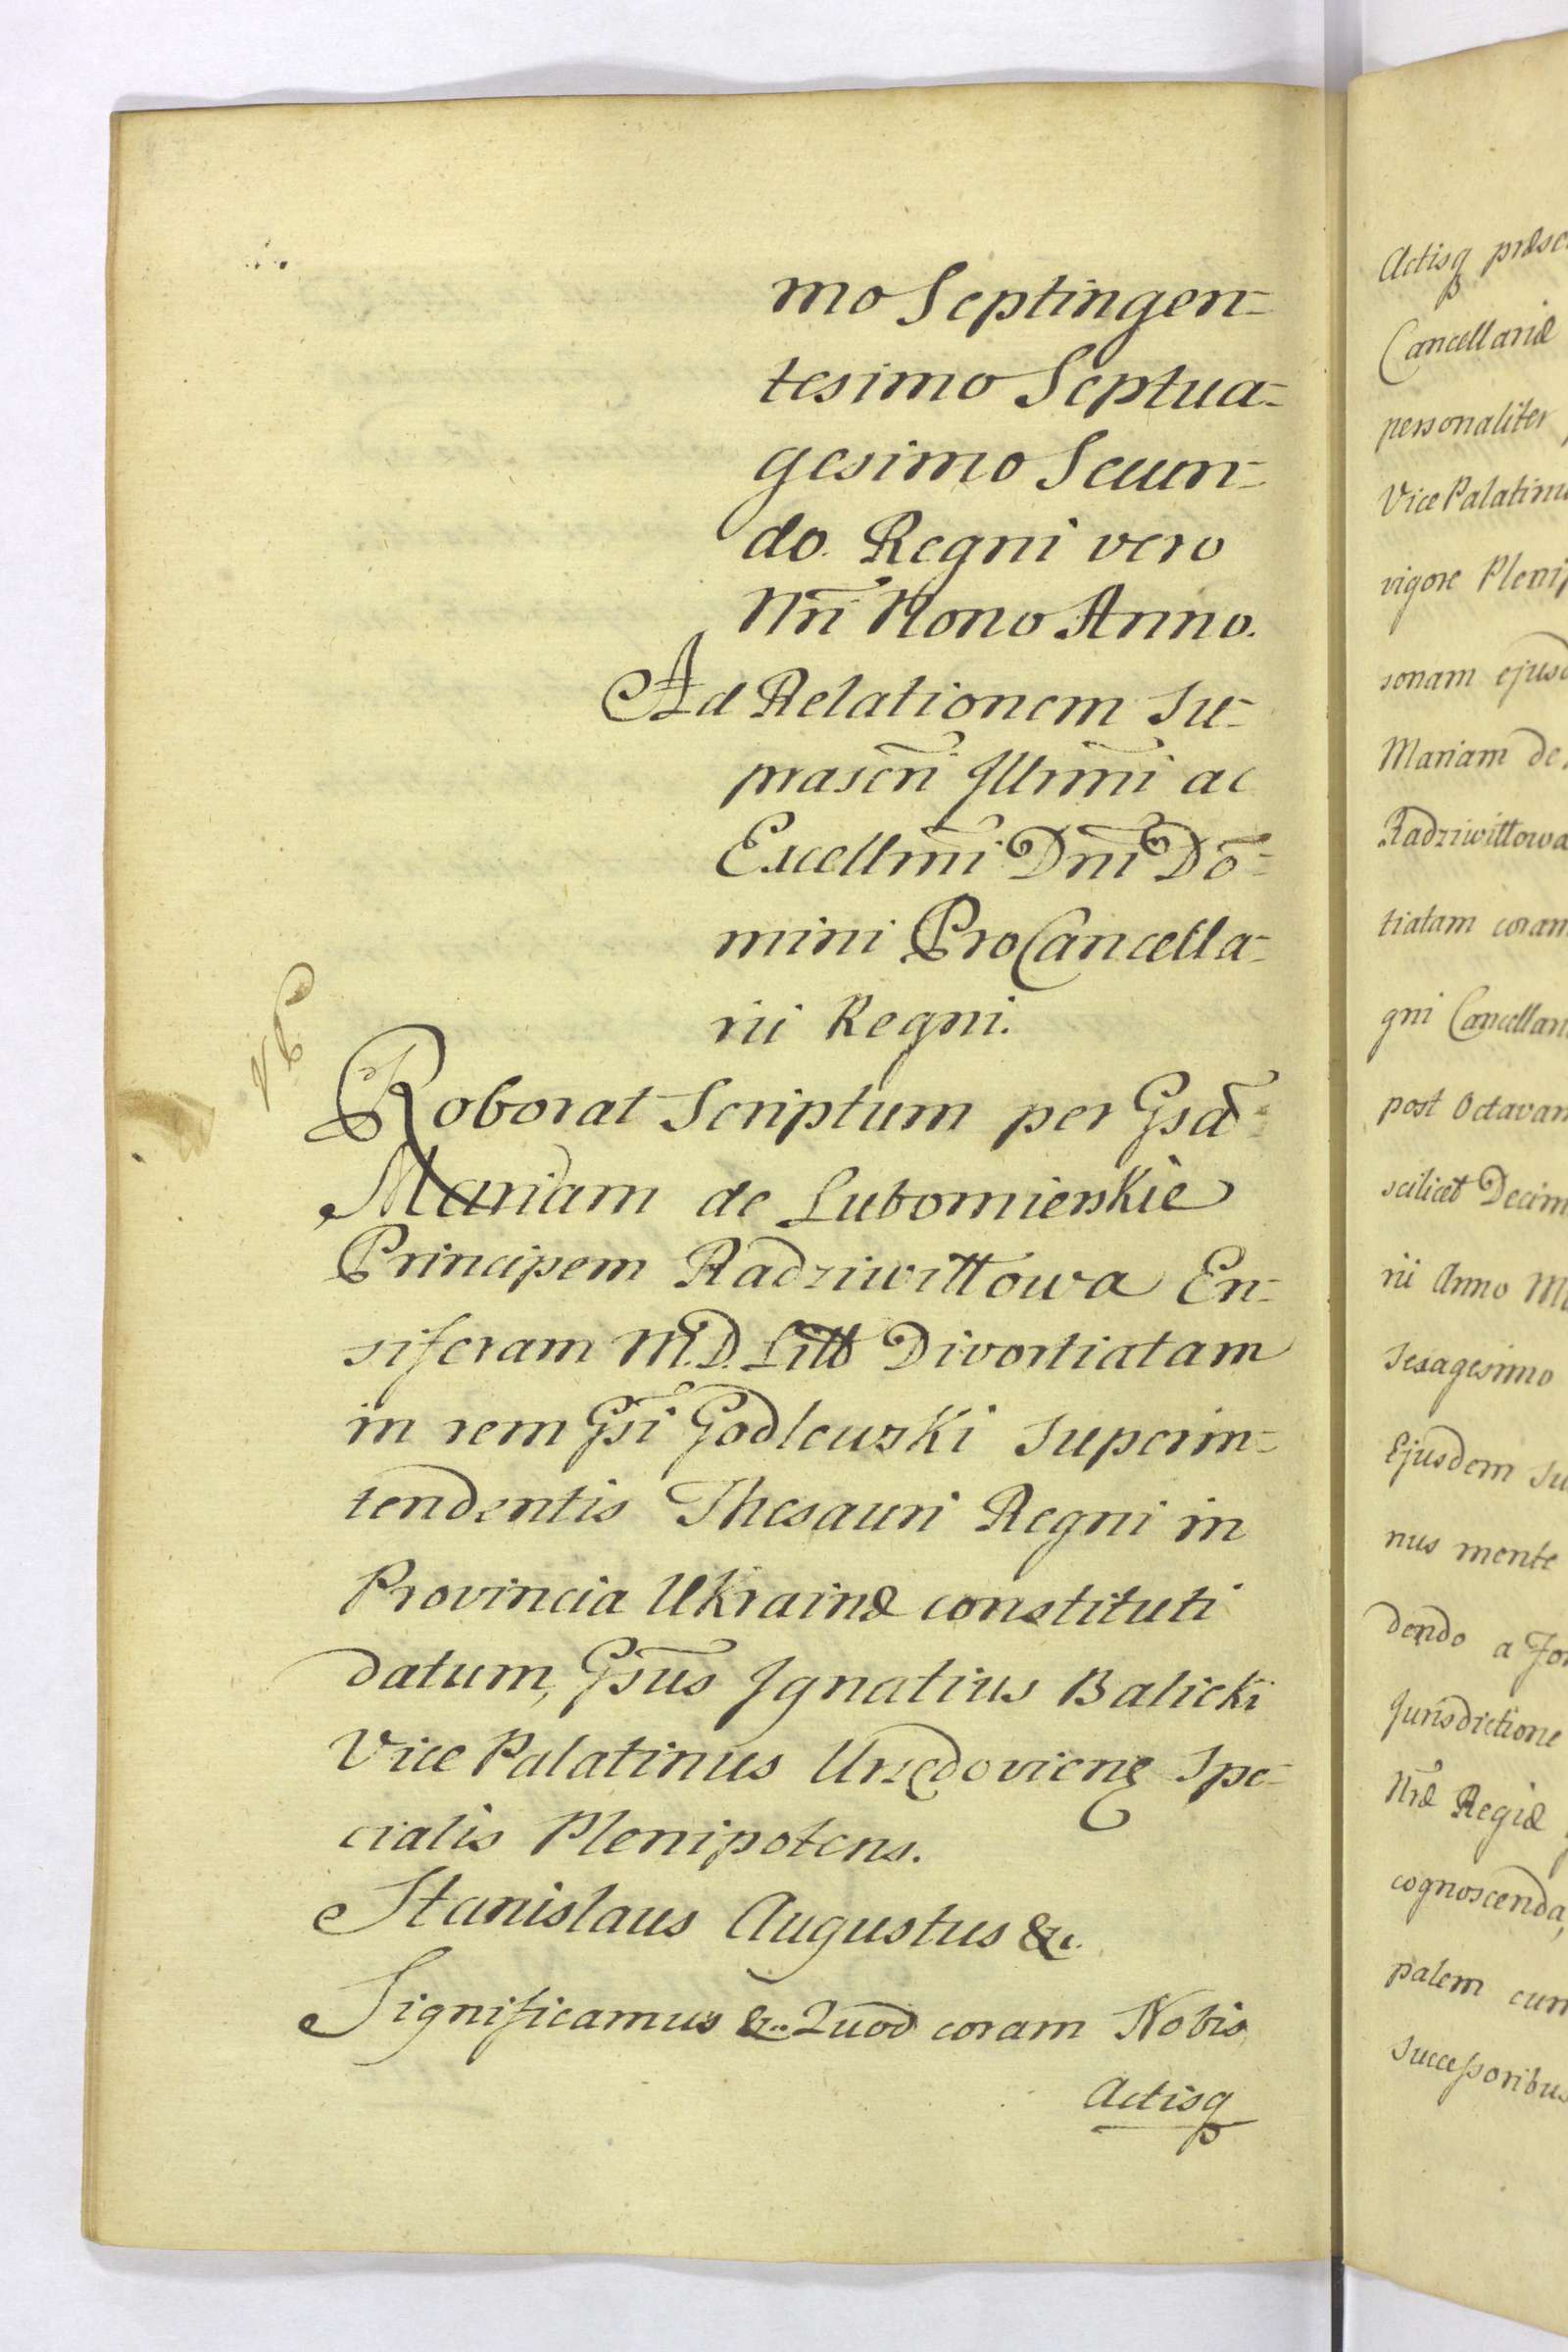 mo Septingen=
tesimo Septua=
gesimo Secun=
do. Regni vero
Nrĩ Nono Anno.
Ad Relationem su=
prascrĩ Jllrimi ac
Excellmĩ Dnĩ Dõ=
mini ProCancella=
rii Regni.
Roborat Scriptum per Gsã
Mariam de Lubomierskie
Principem Radziwiłłowa En=
siferam M.D. Litt Divortiatam
in rem Gsĩ Godlewski superin=
tendentis Thesauri Regni in
Provincia Ukrainæ constituti
datum, Gsũs Jgnatius Balicki
Vice Palatinus Urzędovien̄ Spe=
cialis Plenipotens.
Stanislaus Augustus &c.
Significamus &c. Quod coram Nobis
Actisq
Actisq
Cancellariæ
personaliter
Vice Palatinu
vigore Plenip
sonam ejusd
Mariam de
Radziwiłłowa
tiatam coram
gni Cancellari
post Octavam
scilicet Decim
rii Anno Mi
Sexagesimo
Ejusdem su
nus mente
dendo a For
Jurisdictione
Nræ Regiæ
cognoscenda,
palem cum
Successoribus